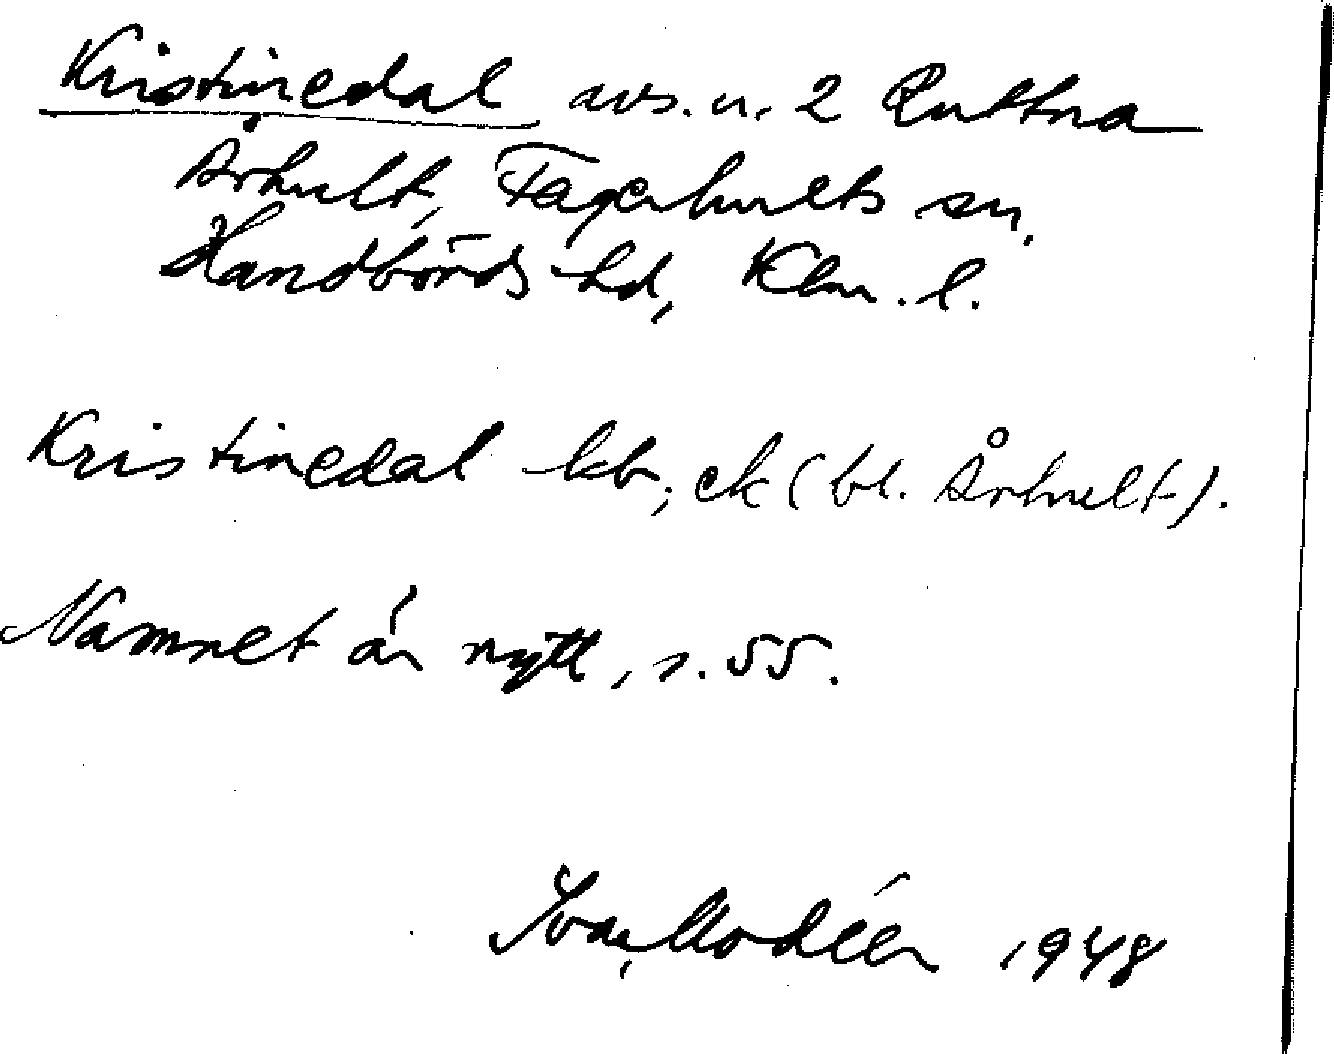 Kristinedal avs. u. 2 Ruttna
Århult, Fagerhults sn.
Handbörds hd, Klm. l.
Kristinedal kb, ek (bl. Århult).
Namnet är nytt, s. 55.
Ivar Modéer 1948